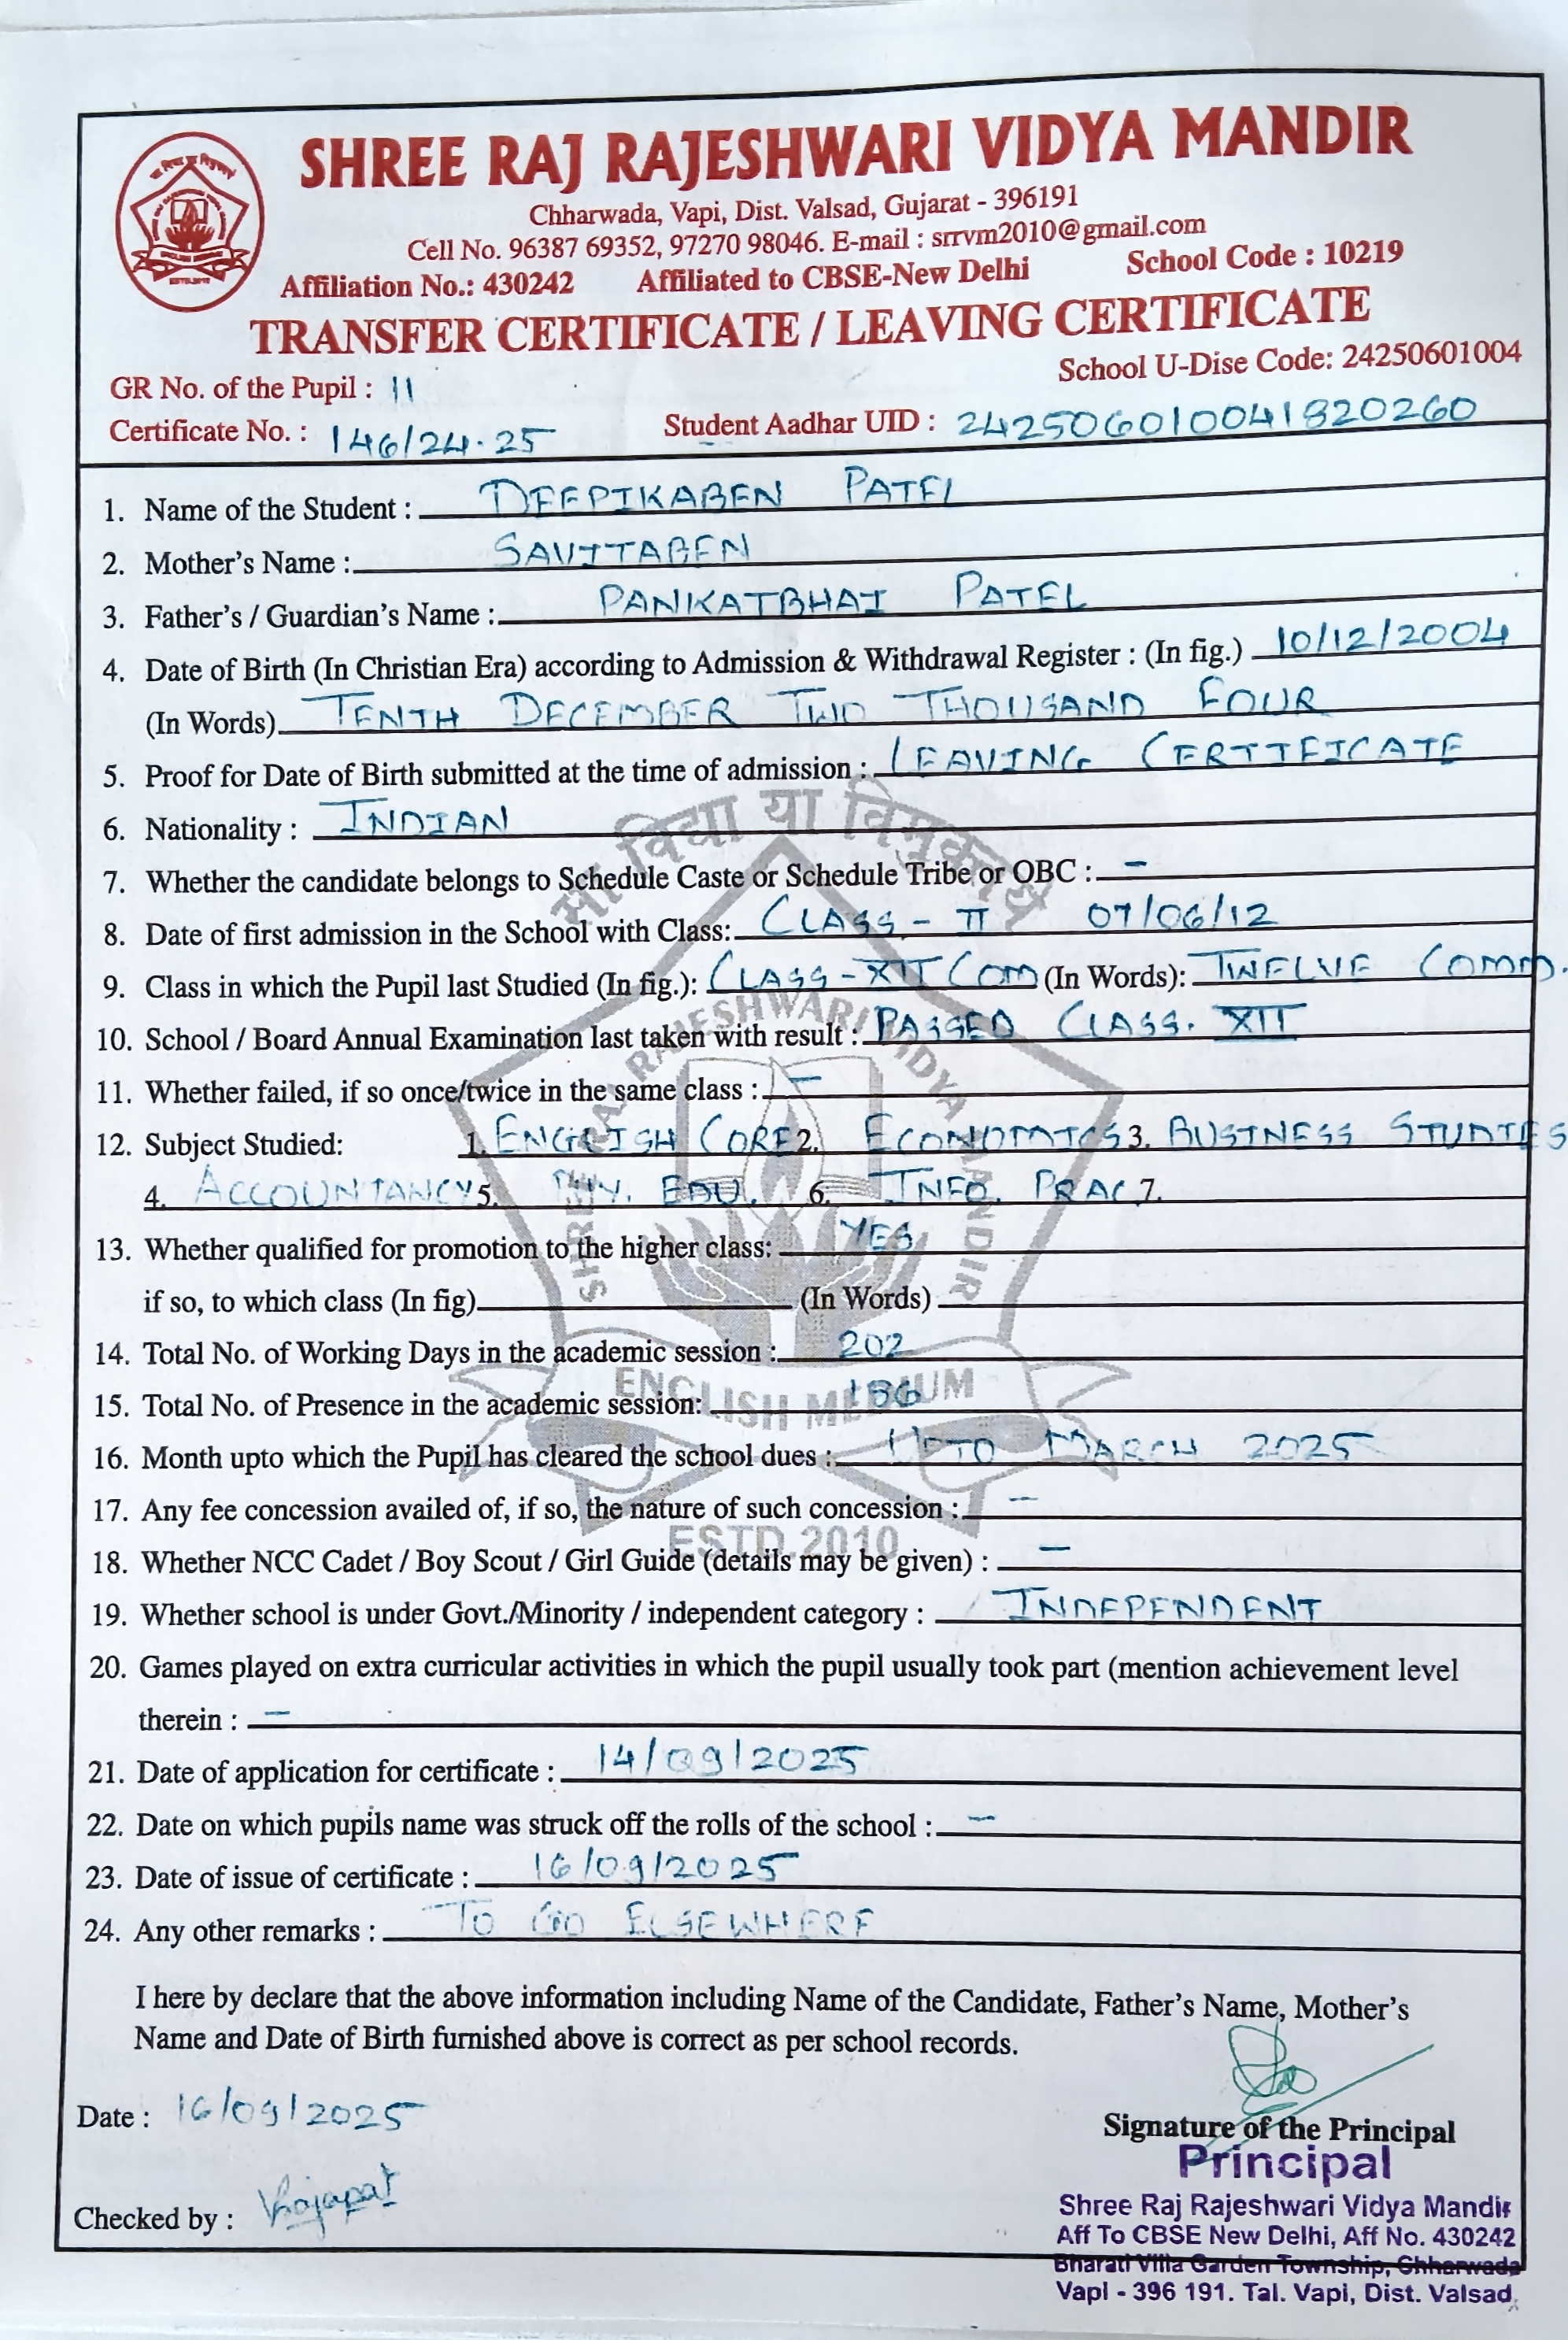 SHREE RAJ RAJESHWARI VIDYA MANDIR
Chharwada, Vapi, Dist. Valsad, Gujarat - 396191
Cell No. 96387 69352, 97270 98046. E-mail : srrvm2010@gmail.com
Affiliation No.: 430242 Affiliated to CBSE-New Delhi School Code : 10219
TRANSFER CERTIFICATE / LEAVING CERTIFICATE
School U-Dise Code: 24250601004
GR No. of the Pupil : 11
Certificate No. : 146/24-25 Student Aadhar UID : 242506010041820260
1. Name of the Student : DEEPIKABEN PATEL
2. Mother's Name : SAVITABEN
3. Father's / Guardian's Name : PANKATBHAI PATEL
4. Date of Birth (In Christian Era) according to Admission & Withdrawal Register : (In fig.) 10/12/2004
(In Words) TENTH DECEMBER TWO THOUSAND FOUR
5. Proof for Date of Birth submitted at the time of admission : LEAVING CERTIFICATE
6. Nationality : INDIAN
7. Whether the candidate belongs to Schedule Caste or Schedule Tribe or OBC : -
8. Date of first admission in the School with Class: CLASS - II 07/06/12
9. Class in which the Pupil last Studied (In fig.): CLASS-XII COM (In Words): TWELVE COMM.
10. School / Board Annual Examination last taken with result : PASSED CLASS. XII
11. Whether failed, if so once/twice in the same class : -
12. Subject Studied: 1. ENGLISH CORE 2. ECONOMICS 3. BUSINESS STUDIES
4. ACCOUNTANCY 5. PHY. EDU. 6. INFO. PRAC 7.
13. Whether qualified for promotion to the higher class: YES
if so, to which class (In fig) (In Words)
14. Total No. of Working Days in the academic session : 202
15. Total No. of Presence in the academic session: 186
16. Month upto which the Pupil has cleared the school dues : UPTO MARCH 2025
17. Any fee concession availed of, if so, the nature of such concession : -
18. Whether NCC Cadet / Boy Scout / Girl Guide (details may be given) : -
19. Whether school is under Govt./Minority / independent category : INDEPENDENT
20. Games played on extra curricular activities in which the pupil usually took part (mention achievement level
therein : -
21. Date of application for certificate : 14/09/2025
22. Date on which pupils name was struck off the rolls of the school : -
23. Date of issue of certificate : 16/09/2025
24. Any other remarks : TO GO ELSEWHERE
I here by declare that the above information including Name of the Candidate, Father's Name, Mother's
Name and Date of Birth furnished above is correct as per school records.
Date : 16/09/2025
Signature of the Principal
Principal
Checked by :
Shree Raj Rajeshwari Vidya Mandir
Aff To CBSE New Delhi, Aff No. 430242
Bharati Villa Garden Township, Chharwada
Vapi - 396 191. Tal. Vapi, Dist. Valsad
मा विद्या या विमुक्तये
SHREE RAJ RAJESHWARI VIDYA MANDIR
ENGLISH MEDIUM
ESTD.2010